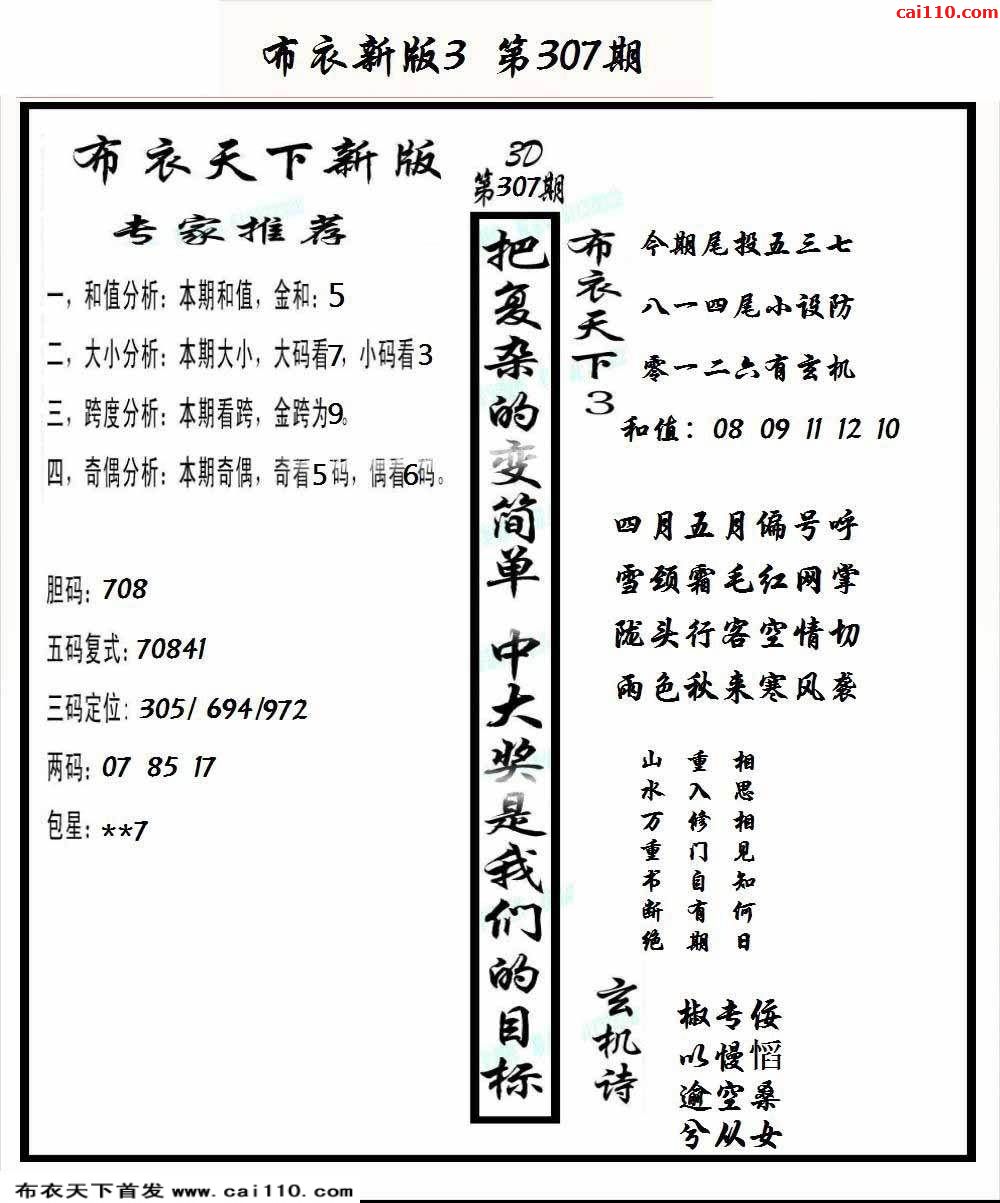 cai110.com
布衣新版3 第307期
布衣天下新版
专家推荐
一，和值分析：本期和值，金和：5
二，大小分析：本期大小，大码看7，小码看3
三，跨度分析：本期看跨，金跨为9。
四，奇偶分析：本期奇偶，奇看5码，偶看6码。
胆码：708
五码复式：70841
三码定位：305/ 694/972
两码：07 85 17
包星：**7
3D
第307期
把复杂的变简单 中大奖是我们的目标
布衣天下3
今期尾投五三七
八一四尾小设防
零一二六有玄机
和值：08 09 11 12 10
四月五月偏号呼
雪颈霜毛红网掌
陇头行客空情切
雨色秋来寒风袭
相思相见知何日
重入修门自有期
山水万重书断绝
玄机诗
椒专佞
以慢慆
逾空桑
兮从女
布衣天下首发 www.cai110.com